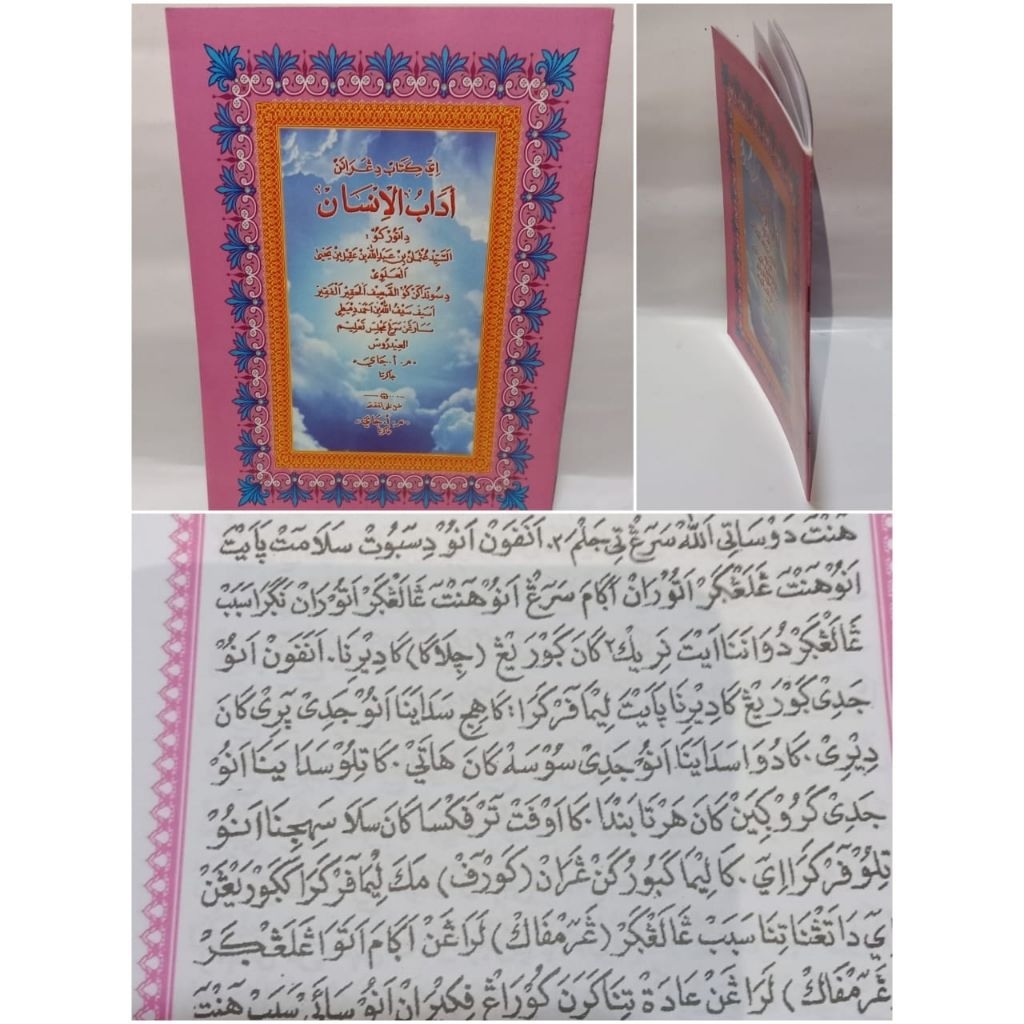 اِيَ كِتَابْ دِڠَرَانَنْ
أدَابُ الْإِنْسَانْ
دِاتُوْرْ كُوْ :
السَّيِّدْ عُثْمَانْ بِنْ عَبْدِاللّٰهْ بِنْ عَقِيْلْ بِنْ يَحْيَى
العَلَوِيْ
دِسُونْدَاكَنْ كُوْ الضَّعِيْفْ الْحَقِيْرْ الْفَقِيْرْ
اَسِيْفْ سَيْفُ اللّٰهْ بِنْ اَحْمَدْ
مَجْلِسْ تَعْلِيْم
العَيْدَرُوْسْ
م. أ. جَايَ
جاكرتا
م. أ. جَايَ
هَنْتَ دَوْسَاتِيْ اَللّٰهْ سَرَڠْ تِيْ جَلْمَ٢. اَنَفَوْنْ اَنُوْ دِسَبُوْتْ سَلَامَتْ ڽَاَيْتَ
اَنُوْ هَنْتَ ڠَلَڠْكَرْ اَتُوْرَانْ اَكَامَ سَرَڠْ اَنُوْ هَنْتَ ڠَالَڠْكَرْ اَتَوْرَانْ نَكَرَا سَبَبْ
ڠَالَڠْكَرْ دُوَانَنَا اَيْتَ نَرِيْك٢ كَانَ كَبَوْرَيَڠْ (چِلَاكَا) كَادِيْرِنَا. اَنَفَوْنْ اَنُوْ
جَدِيْ كَبَوْرَيَڠْ كَادِيْرِنَا ڽَاَيْتَ لِيْمَا فَرْكَرَا : كَاهِجِ سَدَاَيْنَا اَنُوْ جَدِيْ پَرِيْ كَانَ
دِيْرِيْ. كَادُوَا سَدَاَيْنَا اَنُوْ جَدِيْ سُوْسَهْ كَانَ هَاتَيْ. كَا تِلُوْ سَدَايَنَا اَنُوْ
جَدِيْ كَرُوْكِيَنْ كَانَ هَرْتَا بَنْدَا. كَا اَوْفَتْ تَرْفَكْسَا كَانَ سَلَا سَهِجِنَا اَنُوْ
تِلُوْ فَرْكَرَا اِيَ. كَالِيْمَا كَبُوْرُكَنْ ڠَرَانْ (كَوْرَفْ) مَكَ لِيْمَا فَرْكَرَا كَبَوْرَيَڠَنْ
اِيَ دَاتَڠْنَا تِنَا سَبَبْ ڠَالَڠْكَرْ (ڠَرَمْفَاكْ) لَرَاڠَنْ اَكَامَ اَتَوَا ڠَلَڠْكَرْ
(ڠَرَمْفَاكْ) لَرَاڠَنْ عَادَةْ تِنَا كَوْرَاڠْ فِكِرَانْ اَنُوْ سَبَبْ هَنْتَ